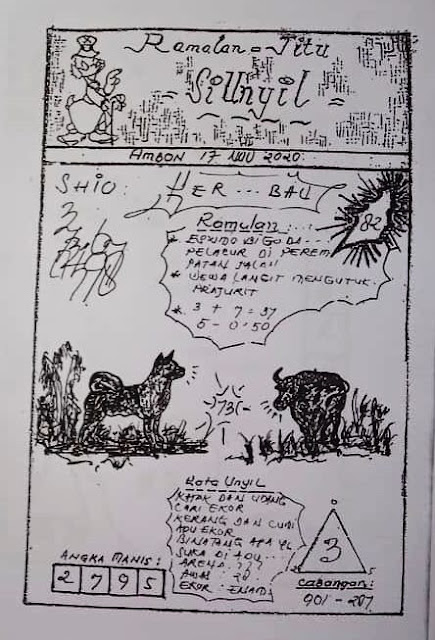 Ramalan = Jitu
= Si Unyil =
AMBON 17 NOV 2020
SHIO:
3
KER... BAU
82
Ramulan:...
* ESKIMO BIGODA...
PELACUR DI PEREM
PATAN JALAN
* DEWA LANGIT MENGUTUK
PRAJURIT
* 3 + 7 = 37
5 - 0 : 50
73(-
Kata Unyil
KATAK DAN UDANG
CARI EKOR
KERANG DAN CUMI
ADU EKOR
BINATANG APA YG
SUKA DI ADU...
ARENA ???
AWAS : 20.
EKOR : ENAM
ANGKA MANIS:
2 7 9 5
0
3
5
Cabangan:
901 - 207